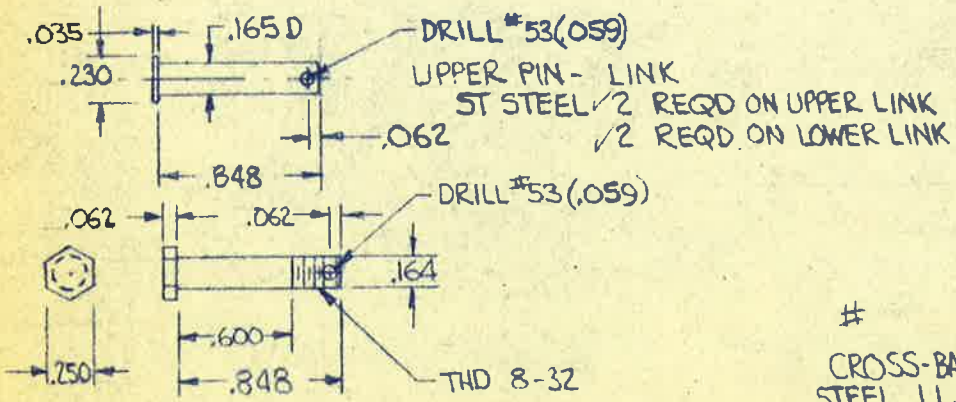 .035
.165 D
DRILL #53(.059)
.230
UPPER PIN - LINK
ST STEEL ✓2 REQD ON UPPER LINK
✓2 REQD. ON LOWER LINK
.062
.848
DRILL #53(.059)
.062
.062
.164
.600
#
.250
.848
THD 8-32
CROSS-BA
STEEL